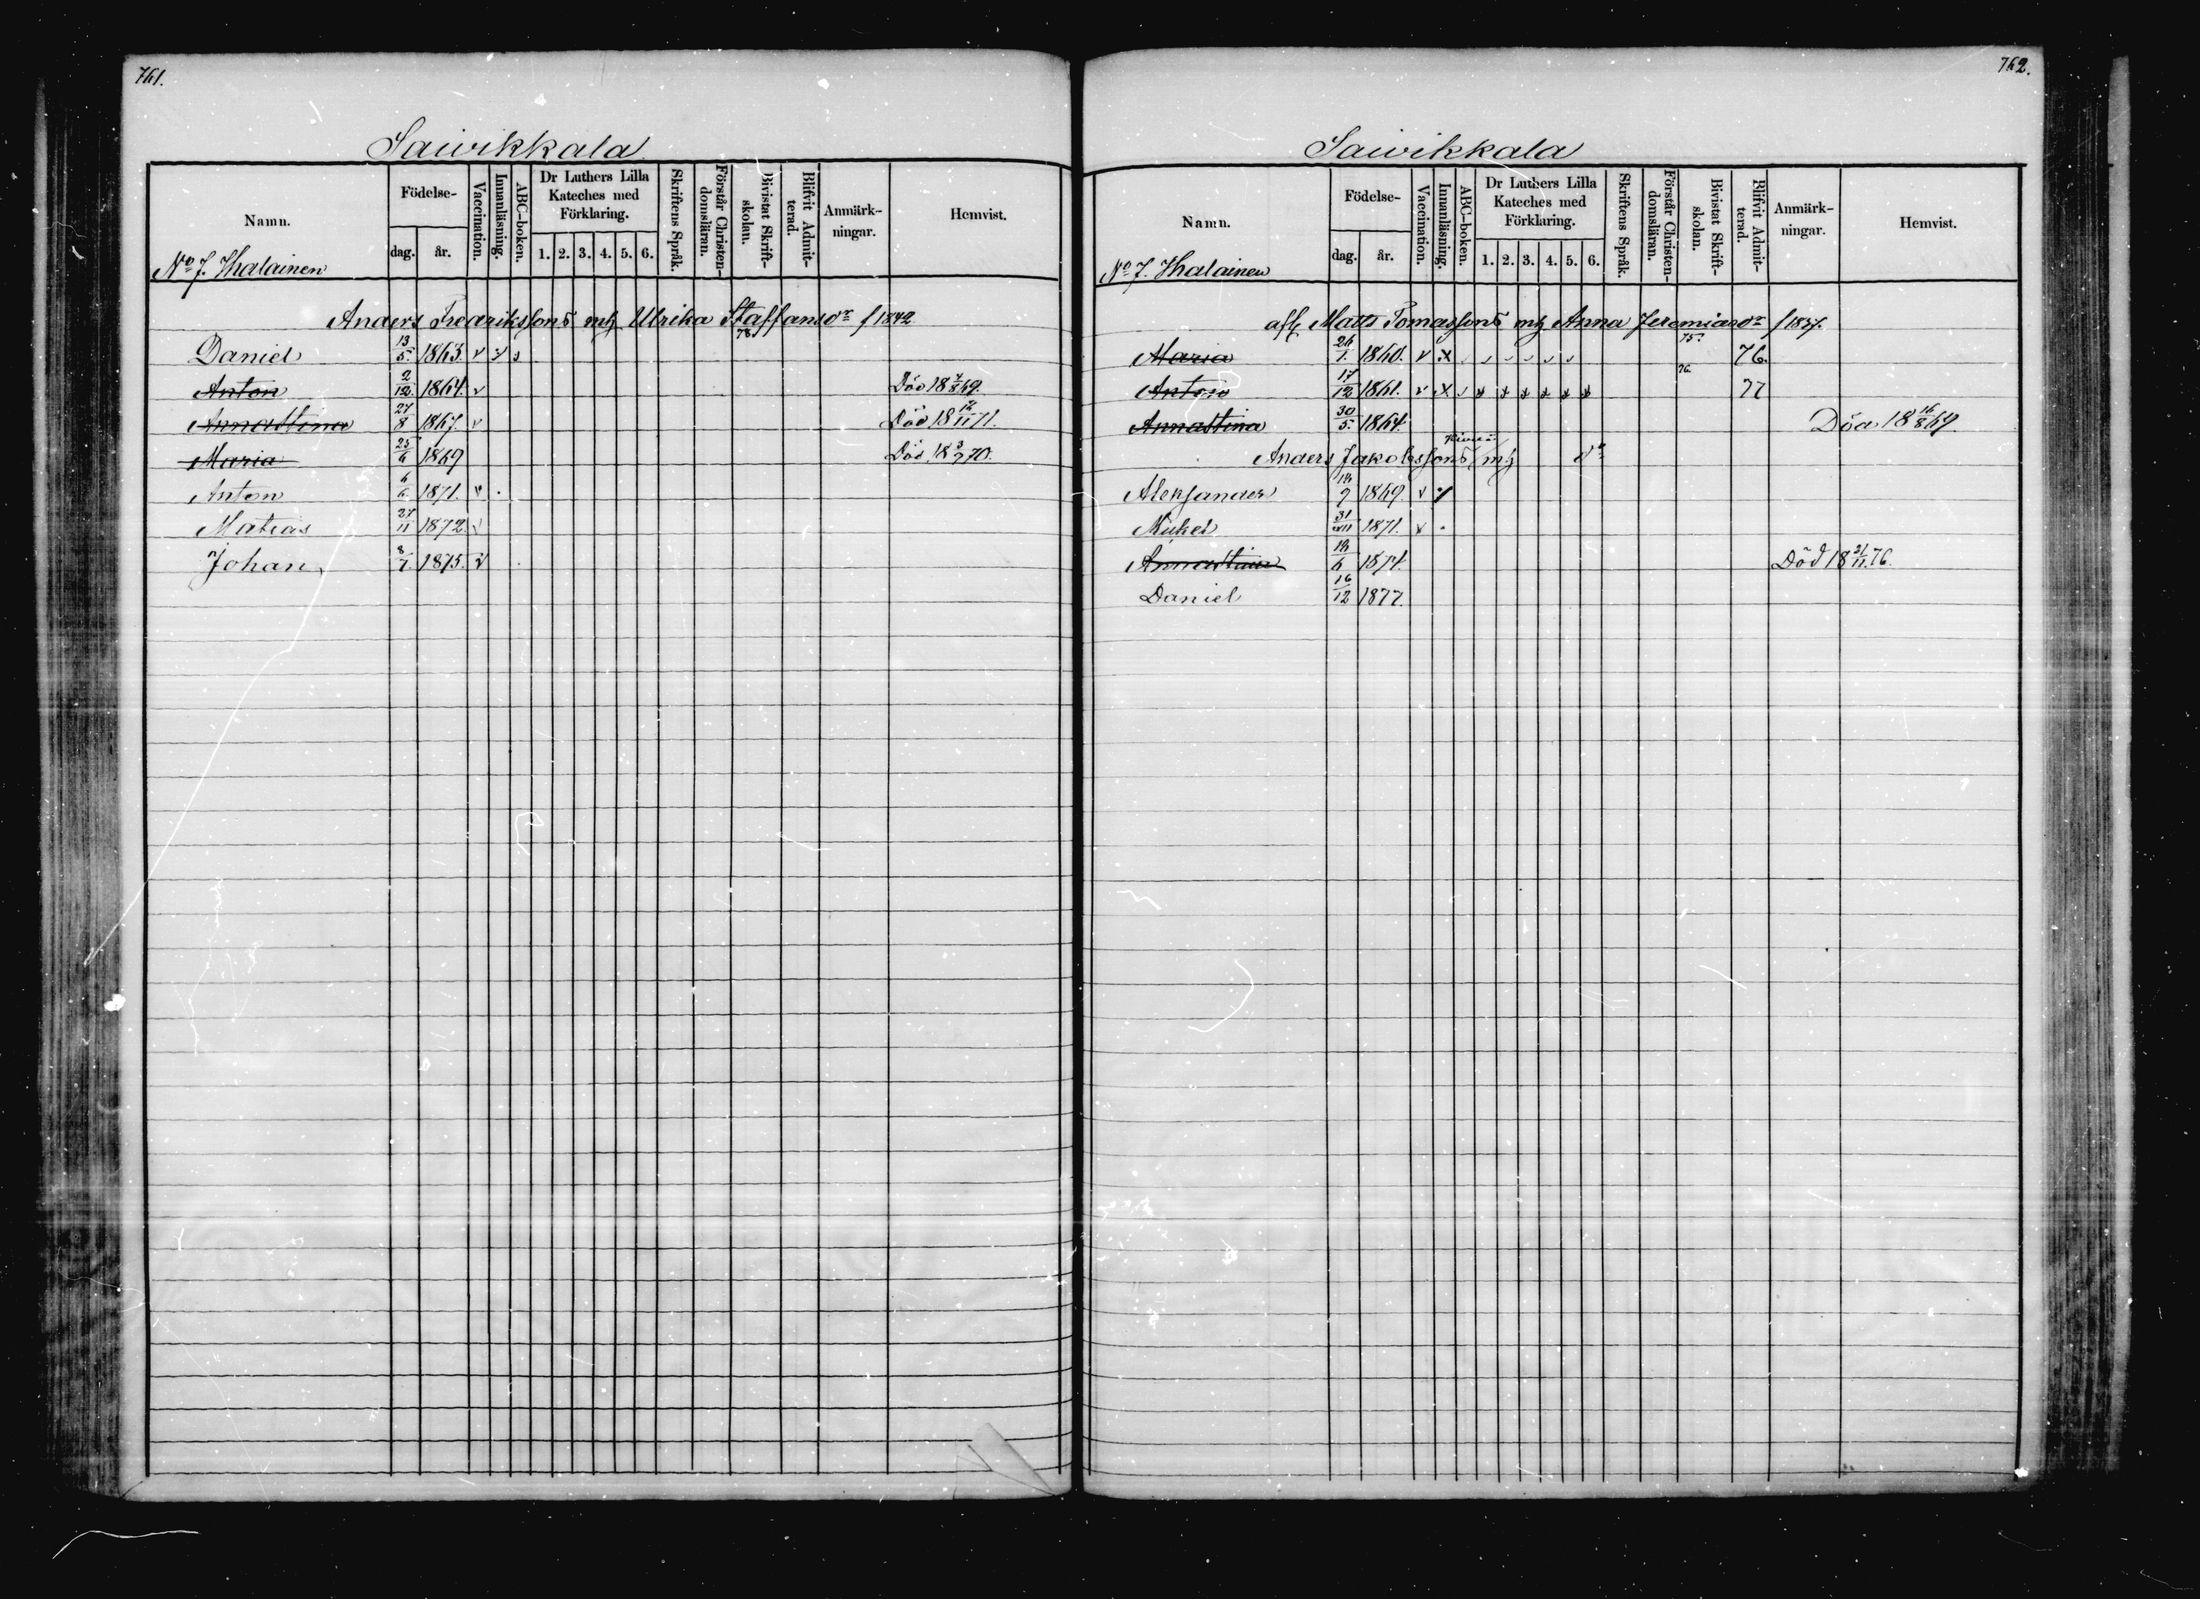 761.
Saivikkala
Namn.
Födelse-
dag.
år.
Vaccination.
Innanläsning.
ABC-boken.
Dr Luthers Lilla Kateches med Förklaring.
1. 2. 3. 4. 5. 6.
Skriftens Språk.
Förstår Christen-domsläran.
Bivistat Skrift-skolan.
Blifvit Admit-terad.
Anmärk-ningar.
Hemvist.
No 7. Ihalainen
Anders Fredrikssons mh Ulrika Staffansdr f 1842
78
Daniel 13/5. 1863. v
Anton 2/12. 1864. v Död 18 4/8 69.
Annastina 27/8 1867. v Död 18 /11 71.
Maria 25/6 1869 Död 18 3/7 70.
Anton 6/6. 1871. v
Matias 27/11 1872. v
Johan 8/7 1875. v
762.
Saivikkala
Namn.
Födelse-
dag.
år.
Vaccination.
Innanläsning.
ABC-boken.
Dr Luthers Lilla Kateches med Förklaring.
1. 2. 3. 4. 5. 6.
Skriftens Språk.
Förstår Christen-domsläran.
Bivistat Skrift-skolan.
Blifvit Admit-terad.
Anmärk-ningar.
Hemvist.
No 7. Ihalainen
afl Matts Tomassons mh Anna Jeremiasdr f 1837.
Maria 26/1. 1860. v x 75. 76.
Anton 17/12 1861. v x 76. 77
Annastina 30/5. 1864. Död 18 16/8 69.
Anders Jakobssons mh dr
Aleksander 1869. v
Mikel 31/ 1871. v
Annastina /6 1874. Död 18 21/11 76.
Daniel 16/12 1877.